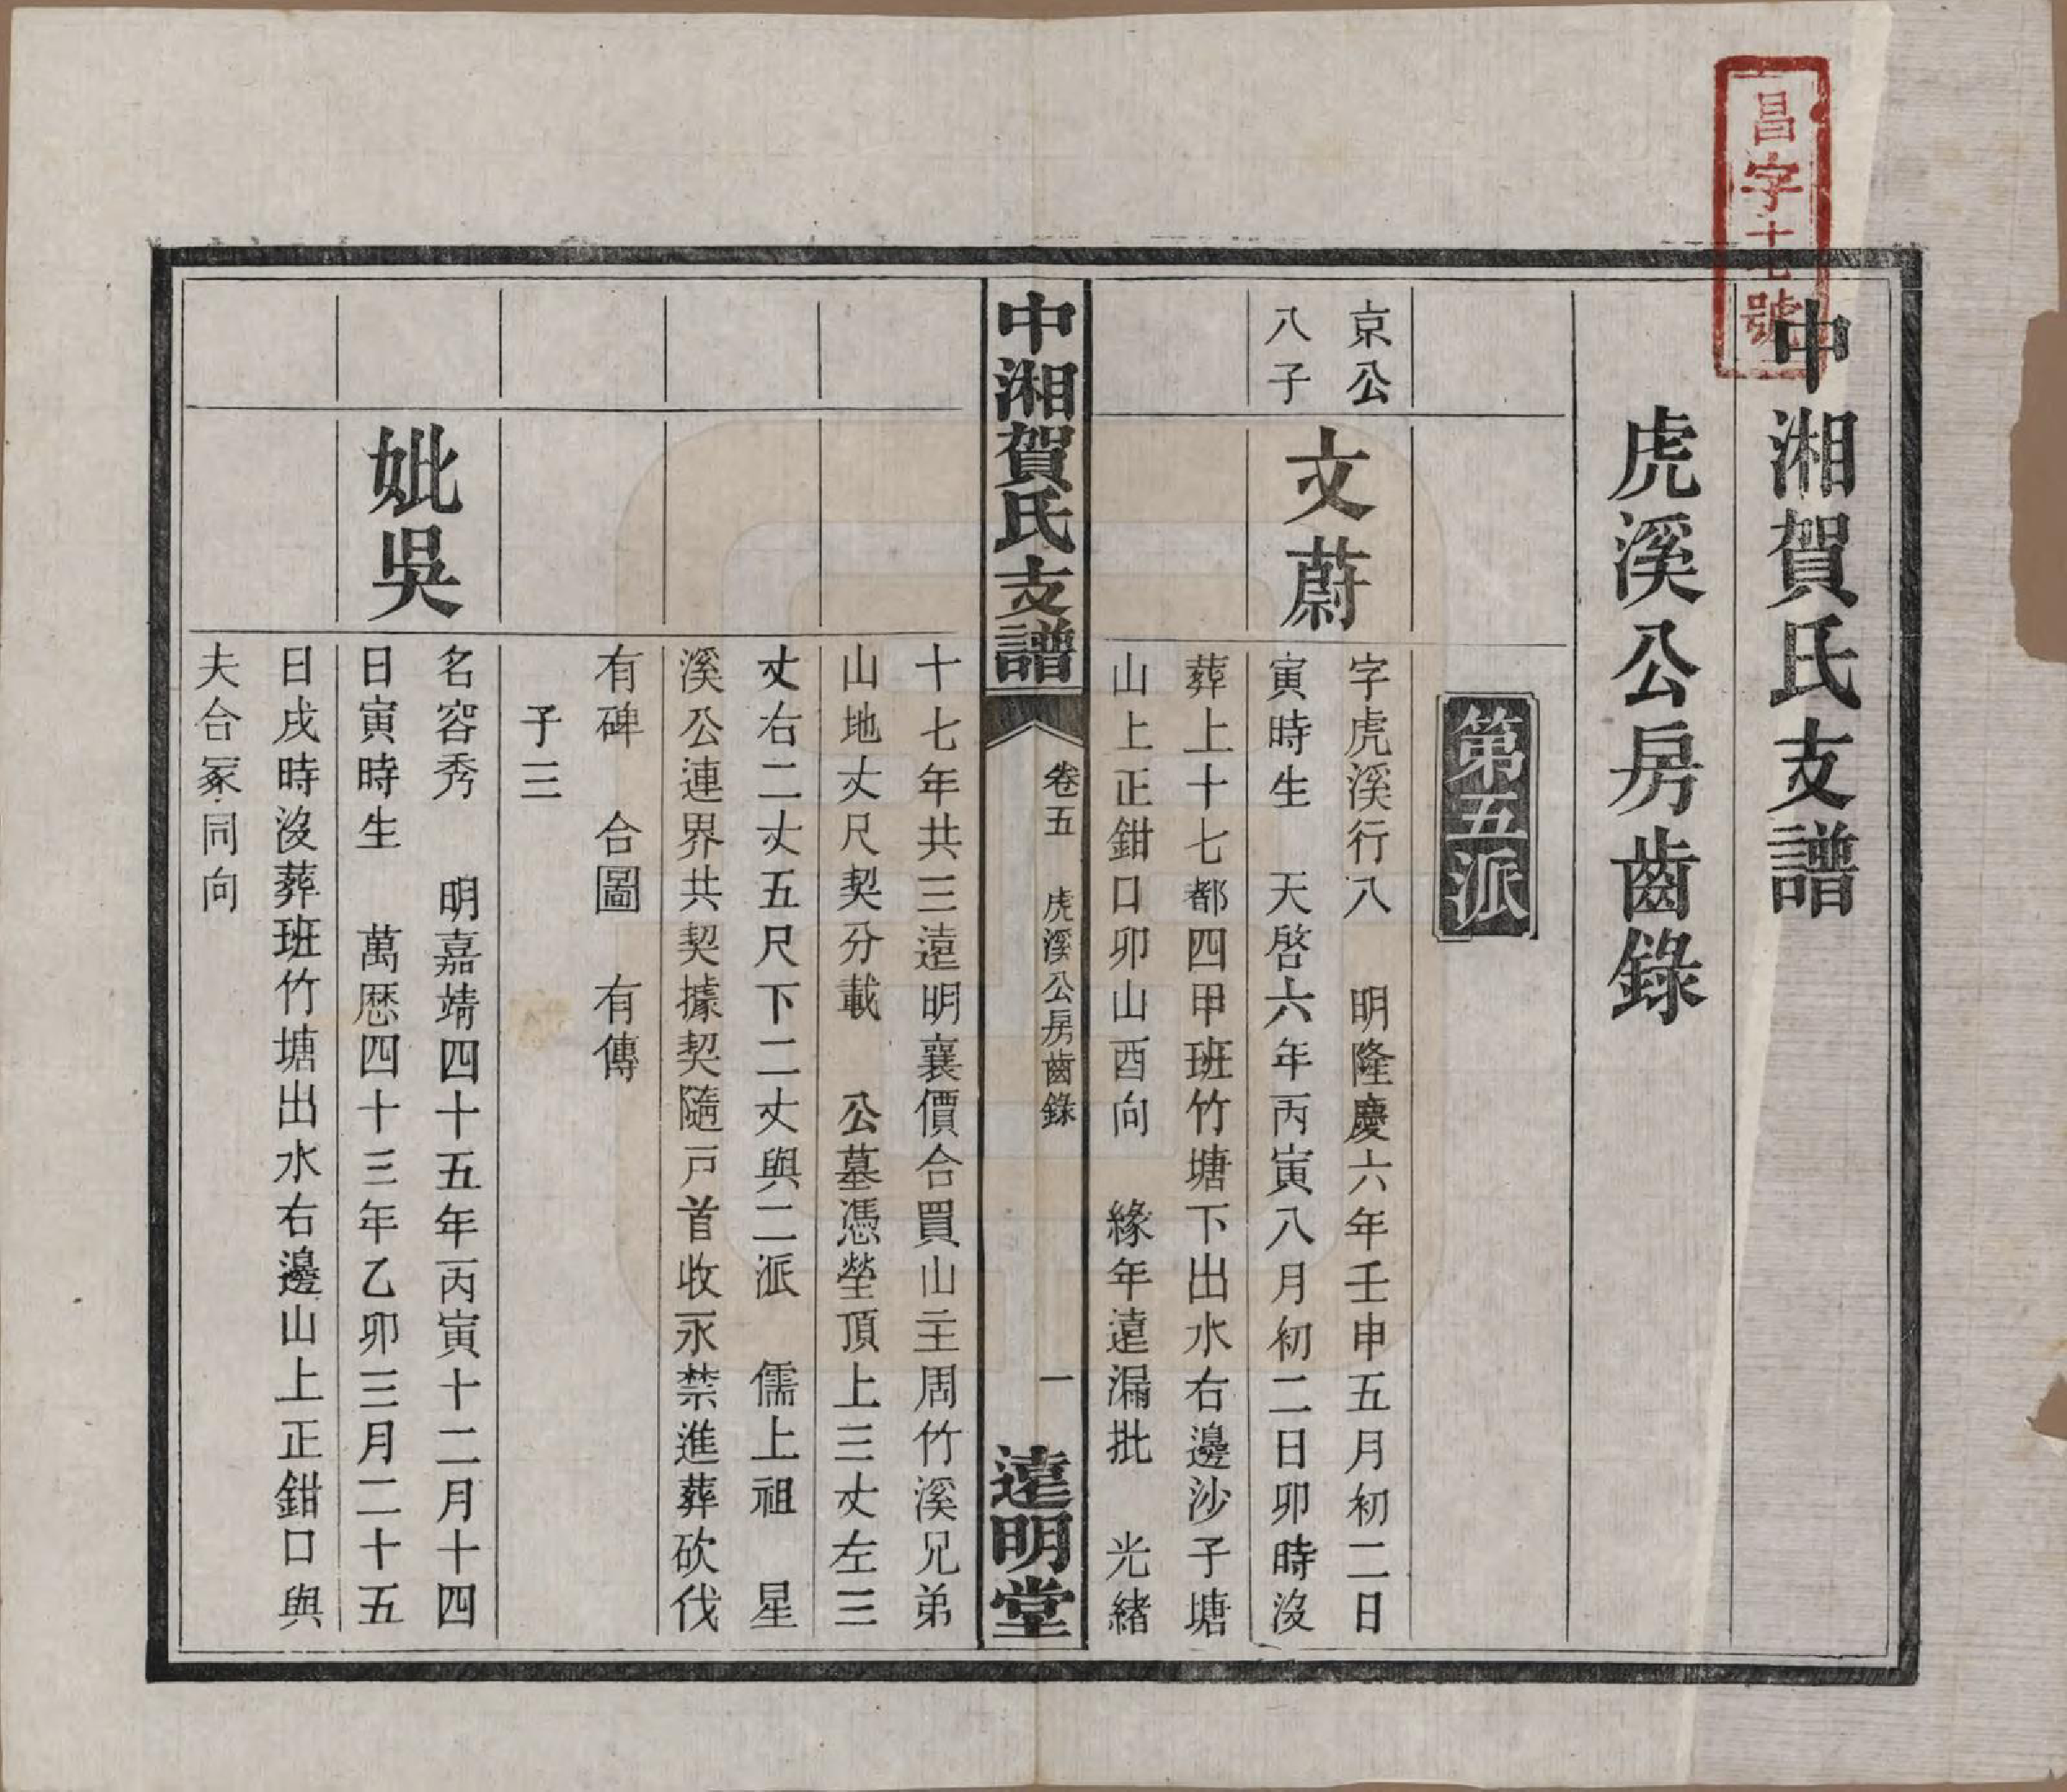 昌字十七號
中湘賀氏支譜
虎溪公房齒錄
第五派
京公
八子
文蔚
字虎溪行八　明隆慶六年壬申五月初二日
寅時生　天啓六年丙寅八月初二日卯時沒
葬上十七都四甲班竹塘下出水右邊沙子塘
山上正鉗口卯山酉向　緣年遠漏批　光緒
中湘賀氏支譜
卷五　虎溪公房齒錄
一
遠明堂
十七年共三遠明襄價合買山主周竹溪兄弟
山地丈尺契分載　公墓憑塋頂上三丈左三
丈右二丈五尺下二丈與二派　儒上祖　星
溪公連界共契據契隨戶首收永禁進葬砍伐
有碑　合圖　有傳
子三
妣吳
名容秀　明嘉靖四十五年丙寅十二月十四
日寅時生　萬歷四十三年乙卯三月二十五
日戌時沒葬班竹塘出水右邊山上正鉗口與
夫合冢同向